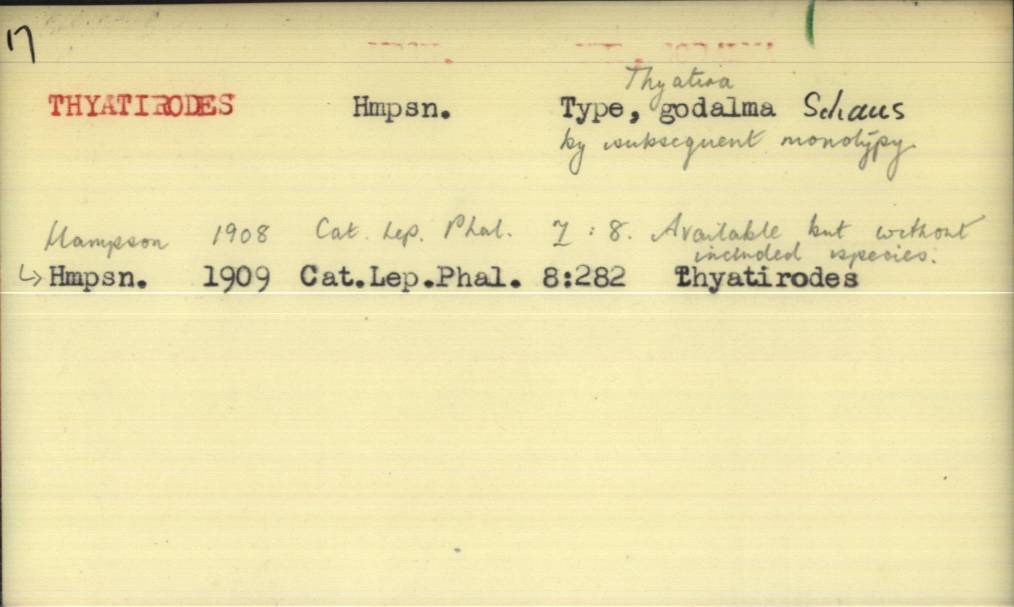 17
Thyatira
THYATIRODES Hmpsn. Type, godalma Schaus
by subsequent monotypy
Hampson 1908 Cat. Lep. Phal. 7 : 8. Available but without
included species.
↳ Hmpsn. 1909 Cat.Lep.Phal. 8:282 thyatirodes